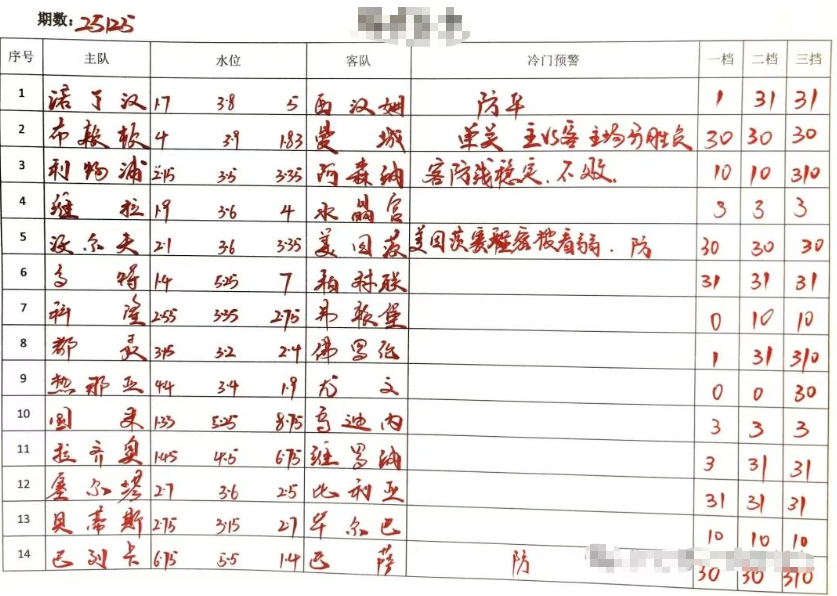 期数: 25125
序号 主队 水位 客队 冷门预警 一档 二档 三挡
1 诺丁汉 1.7 3.8 5 西汉姆 防平 1 31 31
2 布莱顿 4 3.9 1.83 曼城 单关 主场分胜负 30 30 30
3 利物浦 2.15 3.5 3.35 阿森纳 客防线稳定.不败. 10 10 310
4 维拉 1.9 3.6 4 水晶宫 3 3 3
5 沃尔夫 2.1 3.6 3.35 美因茨 美因茨赛程密被看弱.防 30 30 30
6 多特 1.4 5.25 7 柏林联 31 31 31
7 科隆 2.55 3.35 2.75 弗赖堡 0 10 10
8 都灵 3.15 3.2 2.4 佛罗伦 1 31 310
9 热那亚 4.4 3.4 1.9 尤文 0 0 30
10 国米 1.33 5.25 8.75 乌迪内 3 3 3
11 拉齐奥 1.45 4.5 6.75 维罗纳 3 31 31
12 塞尔塔 2.7 3.6 2.5 比利亚 31 31 31
13 贝蒂斯 2.75 3.15 2.7 毕尔巴 10 10 10
14 巴列卡 6.75 5.5 1.4 巴萨 防 30 30 310